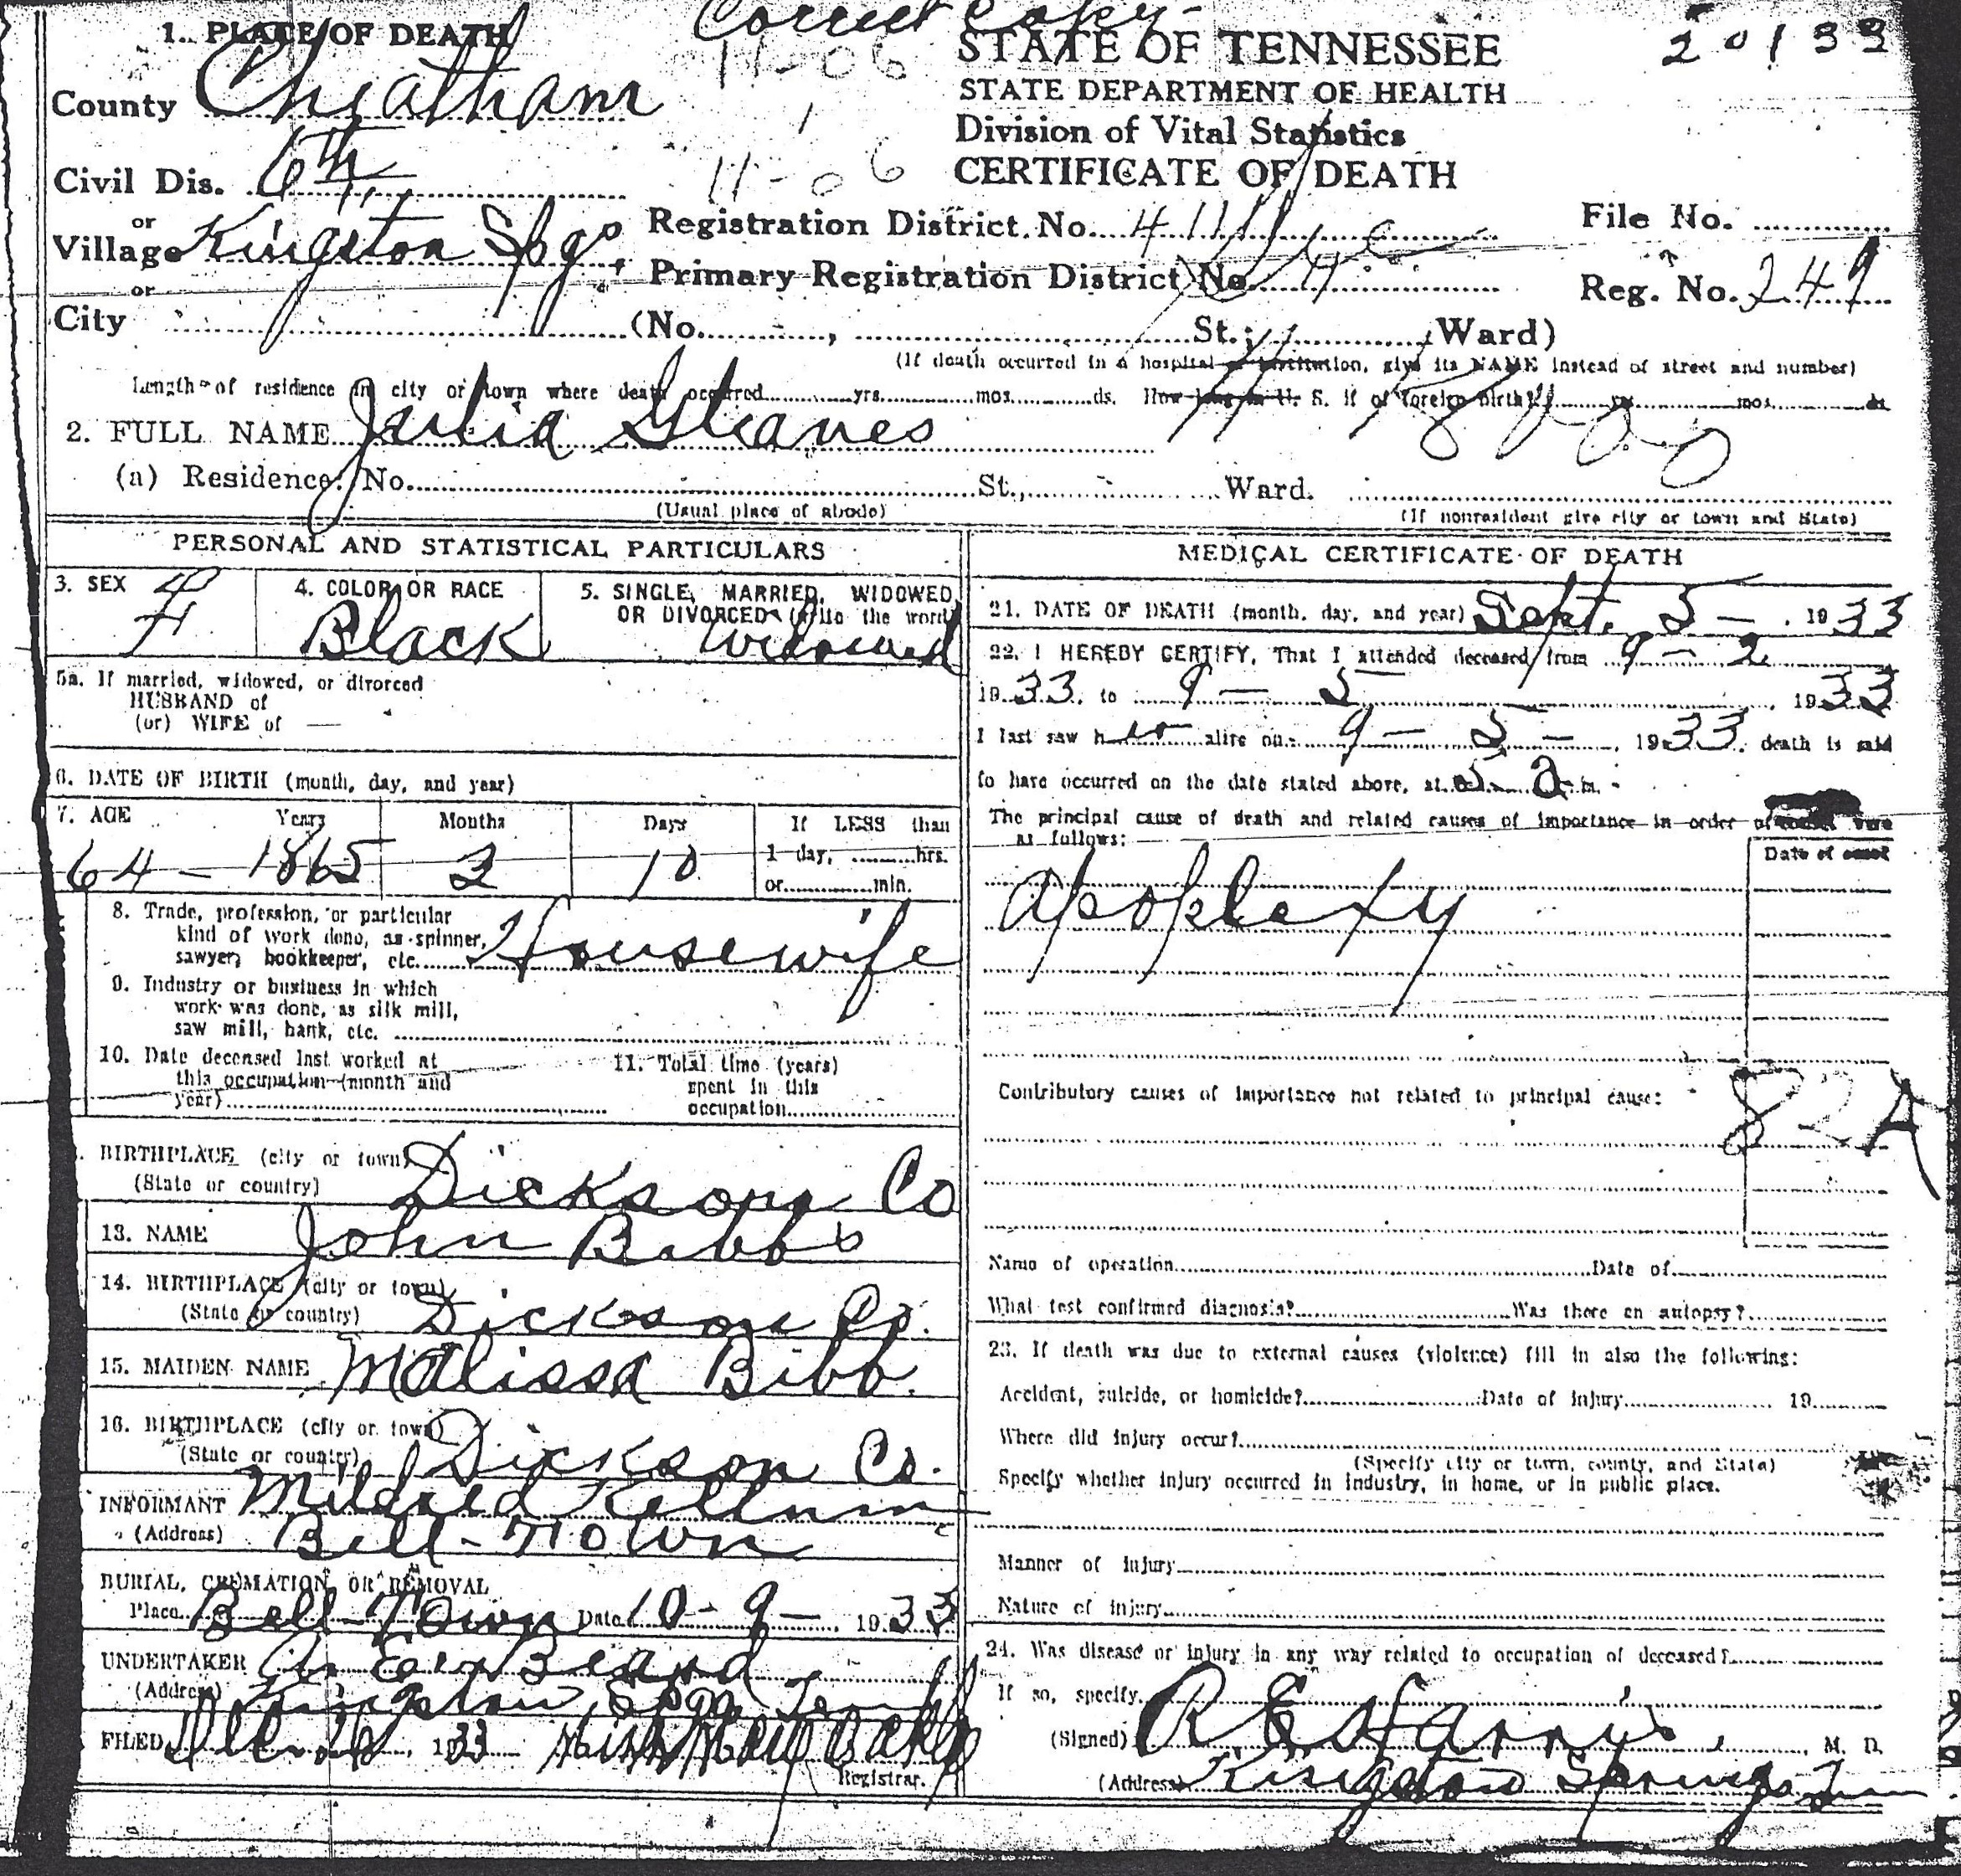 Correct Copy-
20133
1. PLACE OF DEATH
STATE OF TENNESSEE
STATE DEPARTMENT OF HEALTH
Division of Vital Statistics
CERTIFICATE OF DEATH
11-06
11-06
County Cheatham
Civil Dis. 6th
or
Village Kingston Spgs
or
City (No. , St.; Ward)
Registration District No. 411
File No.
Primary Registration District No. 4
Reg. No. 249
(If death occurred in a hospital or institution, give its NAME instead of street and number)
Length of residence in city or town where death occurred yrs. mos. ds. How long in U. S. if of foreign birth? yrs. mos. ds.
2. FULL NAME Julia Gleaves
(a) Residence. No. St., Ward.
(Usual place of abode) (If nonresident give city or town and State)
PERSONAL AND STATISTICAL PARTICULARS
3. SEX F
4. COLOR OR RACE Black
5. SINGLE, MARRIED, WIDOWED, OR DIVORCED (write the word) Widowed
5a. If married, widowed, or divorced
HUSBAND of
(or) WIFE of —
6. DATE OF BIRTH (month, day, and year)
7. AGE Years Months Days If LESS than
1 day, hrs.
or min.
64 - 1865 2 10
8. Trade, profession, or particular
kind of work done, as spinner,
sawyer, bookkeeper, etc. Housewife
9. Industry or business in which
work was done, as silk mill,
saw mill, bank, etc.
10. Date deceased last worked at
this occupation (month and
year)
11. Total time (years)
spent in this
occupation
BIRTHPLACE (city or town) Dickson Co
(State or country)
13. NAME John Bibbs
14. BIRTHPLACE (city or town)
(State or country) Dickson Co.
15. MAIDEN NAME Malissa Bibb.
16. BIRTHPLACE (city or town)
(State or country) Dickson Co.
INFORMANT Mildred Kellum
(Address) Bell-Town
BURIAL, CREMATION, OR REMOVAL
Place Bell-Town Date 10-9-, 1933
UNDERTAKER Beard
(Address) Kingston Spgs Tenn
FILED 1933 Miss May
Registrar.
MEDICAL CERTIFICATE OF DEATH
21. DATE OF DEATH (month, day, and year) Sept. 5 -, 1933
22. I HEREBY CERTIFY, That I attended deceased from 9-2
1933 to 9 - 5, 1933
I last saw h er alive on 9 - 5 -, 1933. death is said
to have occurred on the date stated above, at 5 a m.
The principal cause of death and related causes of importance in order of onset were
as follows:
Date of onset
Apoplexy
Contributory causes of importance not related to principal cause:
82A
Name of operation Date of
What test confirmed diagnosis? Was there an autopsy?
23. If death was due to external causes (violence) fill in also the following:
Accident, suicide, or homicide? Date of injury 19
Where did injury occur?
(Specify city or town, county, and State)
Specify whether injury occurred in industry, in home, or in public place.
Manner of injury
Nature of injury
24. Was disease or injury in any way related to occupation of deceased?
If so, specify
(Signed) R E Harris, M. D.
(Address) Kingston Springs Tenn